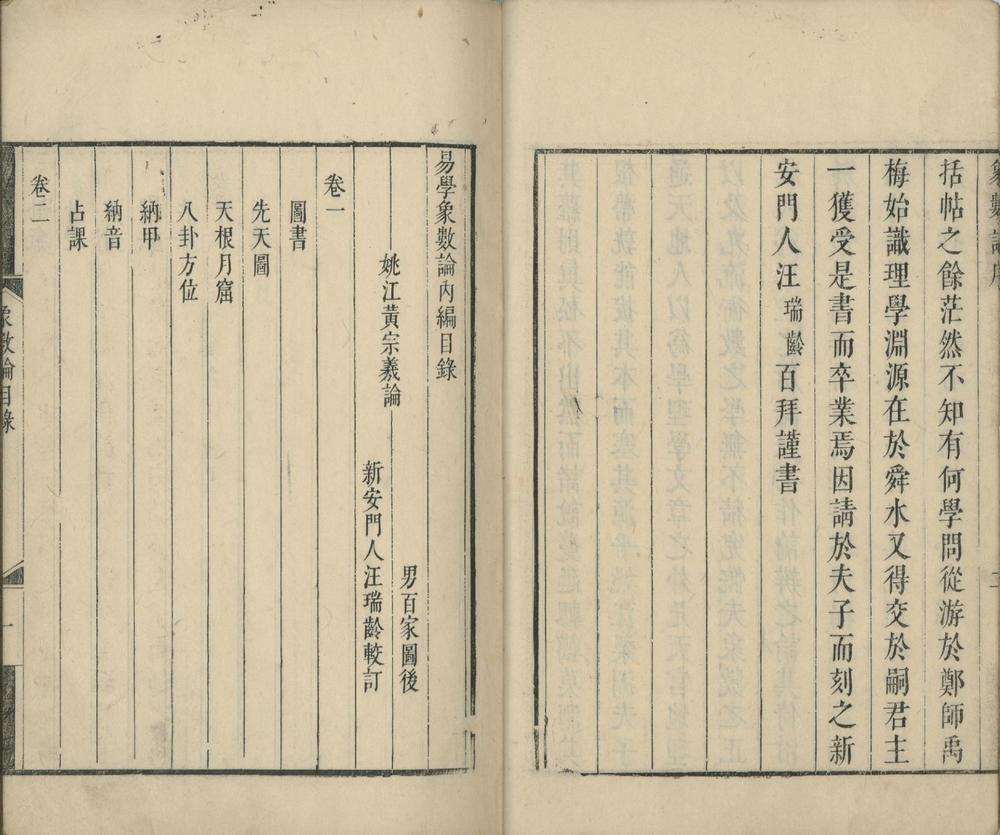 象數論序
二
括帖之餘茫然不知有何學問從游於鄭師禹
梅始識理學淵源在於舜水又得交於嗣君主
一獲受是書而卒業焉因請於夫子而刻之新
安門人汪瑞齡百拜謹書
易學象數論內編目錄
姚江黃宗羲論
男百家圖後
新安門人汪瑞齡較訂
卷一
圖書
先天圖
天根月窟
八卦方位
納甲
納音
占課
卷二
象數論目錄
一